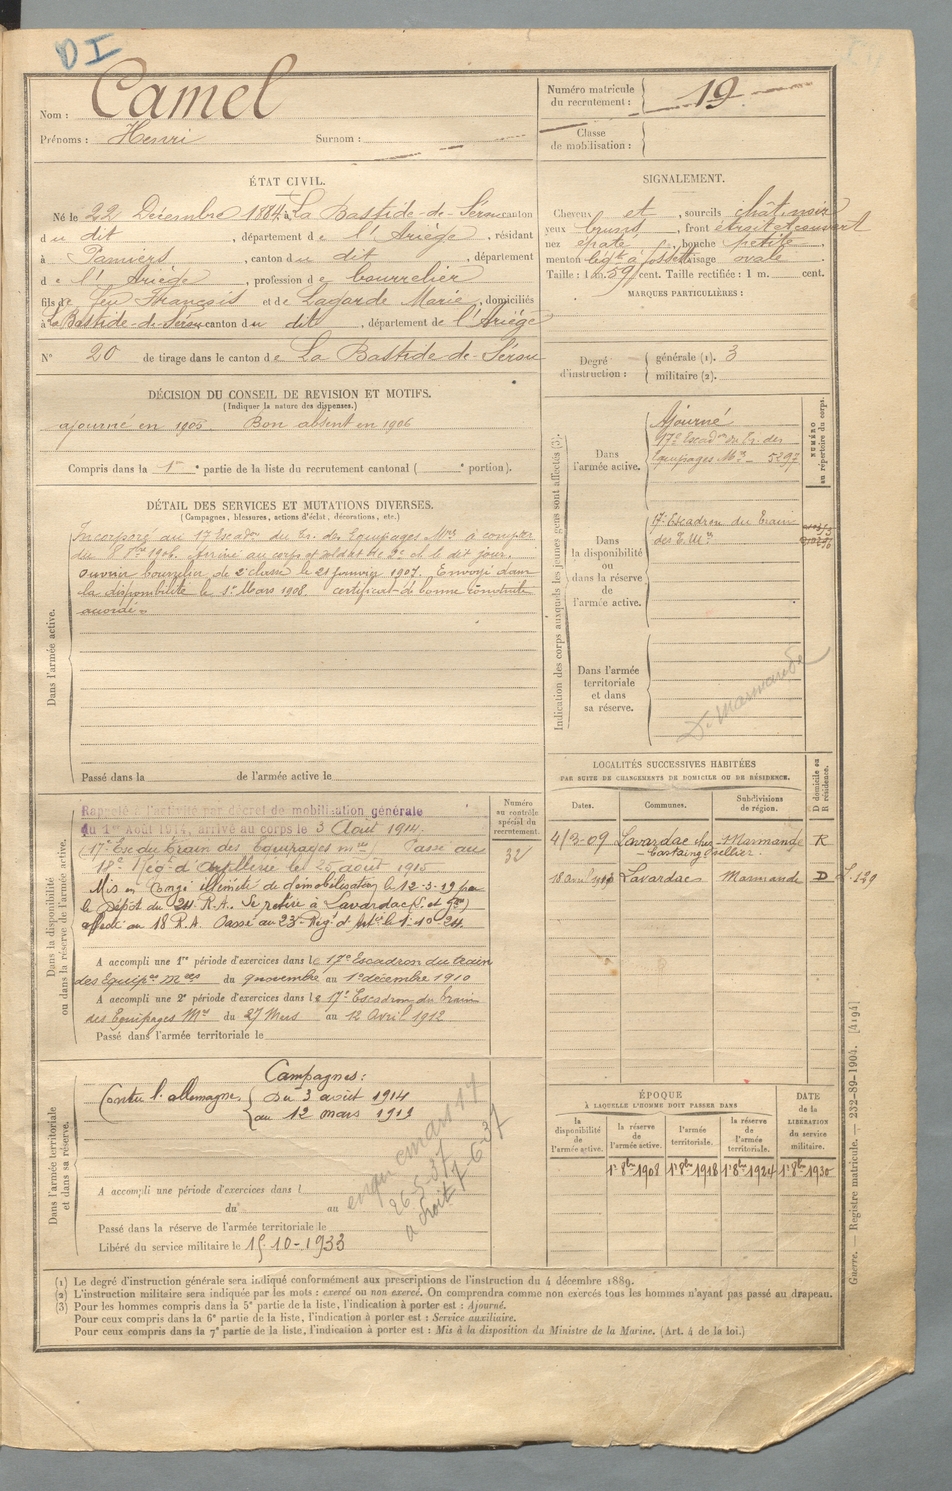 DI
Nom : Camel
Prénoms : Henri Surnom :
Numéro matricule du recrutement : 19
Classe de mobilisation :
ÉTAT CIVIL.
Né le 22 Décembre 1884, à La Bastide-de-Sérou canton
d u dit , département d e l'Ariège , résidant
à Pamiers , canton d u dit , département
d e l'Ariège , profession d e bourrelier
fils de feu François et de Lagarde Marie , domiciliés
à La Bastide-de-Sérou canton d u dit , département de l'Ariège
N° 20 de tirage dans le canton d e La Bastide-de-Sérou
SIGNALEMENT.
Cheveux et , sourcils chât. noir
yeux bruns , front étroit et couvert
nez épaté , bouche petite
menton à fossette visage ovale
Taille : 1 m. 59 cent. Taille rectifiée : 1 m. cent.
MARQUES PARTICULIÈRES :
Degré d'instruction : générale (1). 3
militaire (2).
DÉCISION DU CONSEIL DE REVISION ET MOTIFS.
(Indiquer la nature des dispenses.)
ajourné en 1905. Bon absent en 1906
Compris dans la 1re partie de la liste du recrutement cantonal ( portion).
DÉTAIL DES SERVICES ET MUTATIONS DIVERSES.
(Campagnes, blessures, actions d'éclat, décorations, etc.)
Dans l'armée active.
Incorporé au 17 Escadon du Tr. des Equipages Mres à compter
du 8 8bre 1906. Arrivé au corps et soldat de 2e cl. le dit jour.
Ouvrier bourrelier de 2e classe le 21 janvier 1907. Envoyé dans
la disponibilité le 1er Mars 1908. Certificat de bonne conduite
accordé.
Passé dans la de l'armée active le
Indication des corps auxquels les jeunes gens sont affectés (3).
NUMÉRO au répertoire du corps.
Dans l'armée active.
Ajourné
17e Escadon du Tr. des
Equipages Mres 5297
Dans la disponibilité ou dans la réserve de l'armée active.
17e Escadron du Train
des E. Mres
Dans l'armée territoriale et dans sa réserve.
D. Marmande
LOCALITÉS SUCCESSIVES HABITÉES
PAR SUITE DE CHANGEMENTS DE DOMICILE OU DE RÉSIDENCE.
Dates. Communes. Subdivisions de région. D domicile ou R résidence.
4/3-09 Lavardac chez Marmande R
Castaing sellier.
18 avril Lavardac Marmande D
Dans la disponibilité ou dans la réserve de l'armée active.
Numéro au contrôle spécial du recrutement.
32
Rappelé à l'activité par décret de mobilisation générale
du 1er Août 1914, arrivé au corps le 3 Août 1914.
(17e Esc du Train des Equipages mres) Passé au
18e Régt d'Artillerie le 25 août 1915
Mis en Congé illimité de démobilisation le 12-3-19 par
le Dépôt du 24 R.A. Se retire à Lavardac
affecté au 18 R.A. Passé au 23e Rég. d'Artie le 1-10-24.
A accompli une 1re période d'exercices dans le 17e Escadron du train
des Equipges Mres du 9 novembre au 1er décembre 1910
A accompli une 2e période d'exercices dans le 17e Escadron du Train
des Equipages Mres du 27 Mars au 12 Avril 1912
Passé dans l'armée territoriale le
Dans l'armée territoriale et dans sa réserve.
Campagnes :
Contre l'allemagne Du 3 août 1914
au 12 mars 1919
26-5-37
A accompli une période d'exercices dans l
du au
Passé dans la réserve de l'armée territoriale le
Libéré du service militaire le 15-10-1933
ÉPOQUE
À LAQUELLE L'HOMME DOIT PASSER DANS
DATE de la LIBÉRATION du service militaire.
la disponibilité de l'armée active. la réserve de l'armée active. l'armée territoriale. la réserve de l'armée territoriale.
1er 8bre 1908 1er 8bre 1918 1er 8bre 1924 1er 8bre 1930
(1) Le degré d'instruction générale sera indiqué conformément aux prescriptions de l'instruction du 4 décembre 1889.
(2) L'instruction militaire sera indiquée par les mots : exercé ou non exercé. On comprendra comme non exercés tous les hommes n'ayant pas passé au drapeau.
(3) Pour les hommes compris dans la 5e partie de la liste, l'indication à porter est : Ajourné.
Pour ceux compris dans la 6e partie de la liste, l'indication à porter est : Service auxiliaire.
Pour ceux compris dans la 7e partie de la liste, l'indication à porter est : Mis à la disposition du Ministre de la Marine. (Art. 4 de la loi.)
Guerre. — Registre matricule. — 232-89-1904. [4194]